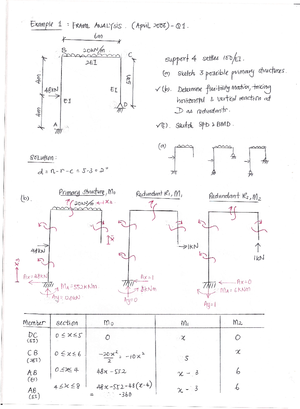 Example 1 : FRAME ANALYSIS. (April 2008) - Q1.
6m
20kN/m
B
C
2EI
48kN
EI
EI
4m
4m
5m
D
A
support A settles 150/EI.
(a) Sketch 3 possible primary structures.
✓(b) Determine flexibility matrix, taking
horizontal & vertical reaction at
D as redundants.
✓(c) Sketch SFD & BMD.
(a)
Solution:
(b).
Primary structure, M0
20kN/m
48kN
Ay = 120kN
Redundant R1, M1
1kN
Ay = 0
Redundant R2, M2
1kN
Ax = 0
Ay = 1
Member
section
M0
M1
M2
DC
(EI)
0 ≤ x ≤ 5
0
x
0
CB
(2EI)
0 ≤ x ≤ 6
-20x²/2 = -10x²
5
x
AB
(EI)
0 ≤ x ≤ 4
48x - 552
x - 3
6
AB
(EI)
4 ≤ x ≤ 8
48x - 552 - 48(x-4)
= -360
x - 3
6